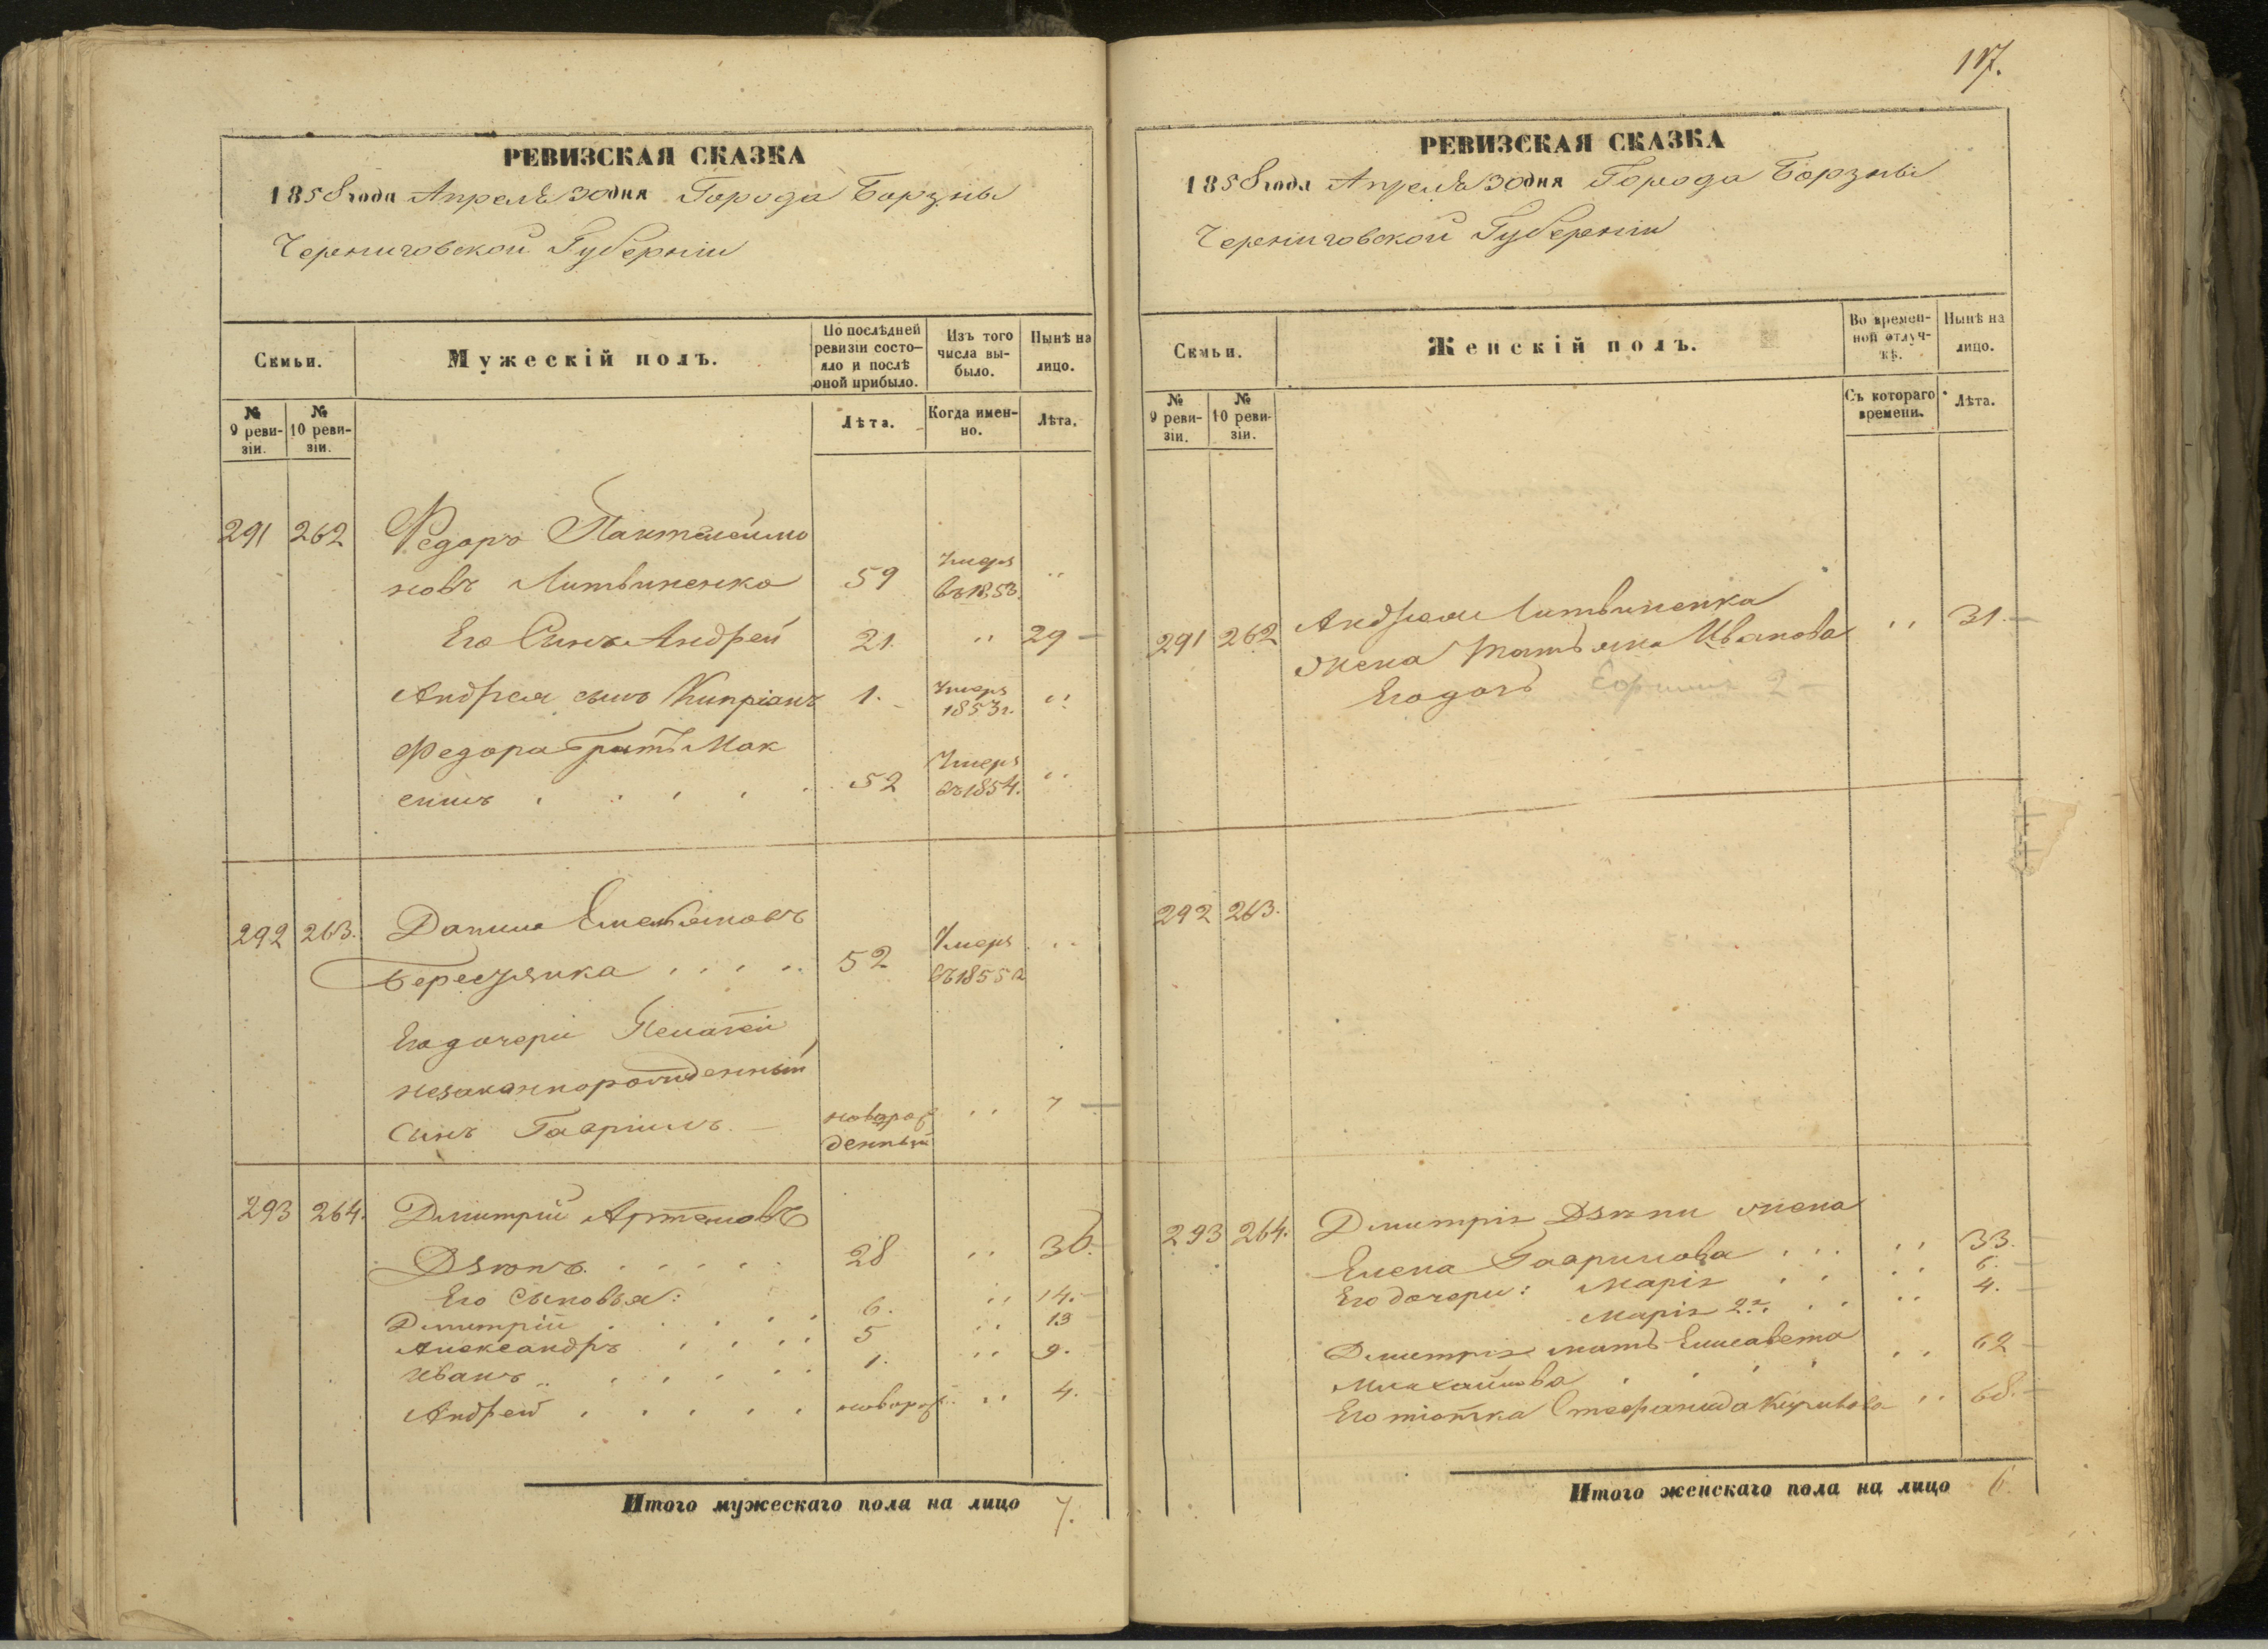 РЕВИЗСКАЯ СКАЗКА
1858 года Апреля 30 дня Города Борзны
Черниговской Губерніи
Семьи.
Мужескій полъ.
По послѣдней ревизіи состо-
яло и послѣ
оной прибыло.
Изъ того
числа вы-
было.
Нынѣ на
лицо.
№
9 реви-
зіи.
№
10 реви-
зіи.
Лѣта.
Когда имен-
но.
Лѣта.
291 262 Федоръ Пантелеимо
новъ Литвиненко 59 Умеръ въ 1853 "
Его Сынъ Андрей 21. " 29 —
Андрея сынъ Кипріанъ 1. Умеръ 1853 г. "
Федора братъ Мак
симъ 52 Умеръ въ 1854. "
292 263. Данило Емельяновъ
52 Умеръ въ 1855 г "
Его дочери Пелагеи
незаконнорожденный
Сынъ Гавріилъ. — новорож
денный " 7 —
293 264. Дмитрій Артемовъ
Дзюпъ. 28 " 36. —
Его Сыновья:
Дмитрій 6. " 14. —
Александръ 5 " 13 —
Иванъ 1. " 9. —
Андрей новорож. " 4. —
Итого мужескаго пола на лицо 7.
117.
РЕВИЗСКАЯ СКАЗКА
1858 года Апреля 30 дня Города Борзны
Черниговской Губерніи
Семьи.
Женскій полъ.
Во времен-
ной отлуч-
кѣ.
Нынѣ на
лицо.
№
9 реви-
зіи.
№
10 реви-
зіи.
Съ котораго
времени.
Лѣта.
291 262 Андрея Литвиненка
жена Татьяна Иванова " 31. —
Его дочь 2 —
292 263.
293 264. Дмитрія Дзюпи жена
Елена Гаврилова " 33. —
Его дочери: Марія " 6. —
Марія 2я. " 4. —
Дмитрія мать Елисавета
Михайлова " 62 —
Его тіотка Стефанида " 68. —
Итого женскаго пола на лицо 6.